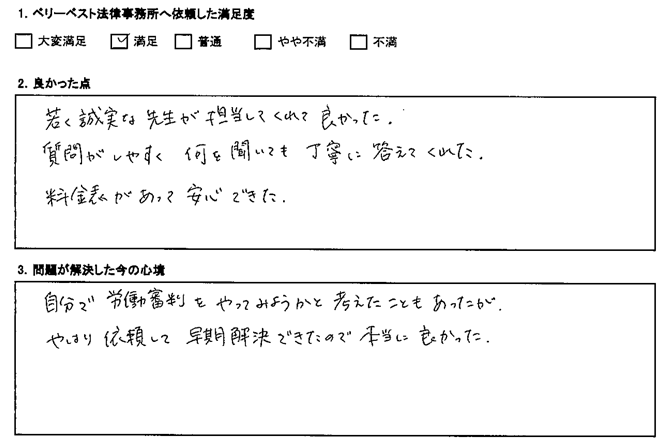 1. ベリーベスト法律事務所へ依頼した満足度
□ 大変満足 ☑ 満足 □ 普通 □ やや不満 □ 不満
2. 良かった点
若く誠実な先生が担当してくれて良かった.
質問がしやすく 何を聞いても 丁寧に 答えてくれた.
料金表があって 安心できた.
3. 問題が解決した今の心境
自分で 労働審判を やってみようかと 考えたこともあったが.
やはり 依頼して 早期解決できたので 本当に 良かった.